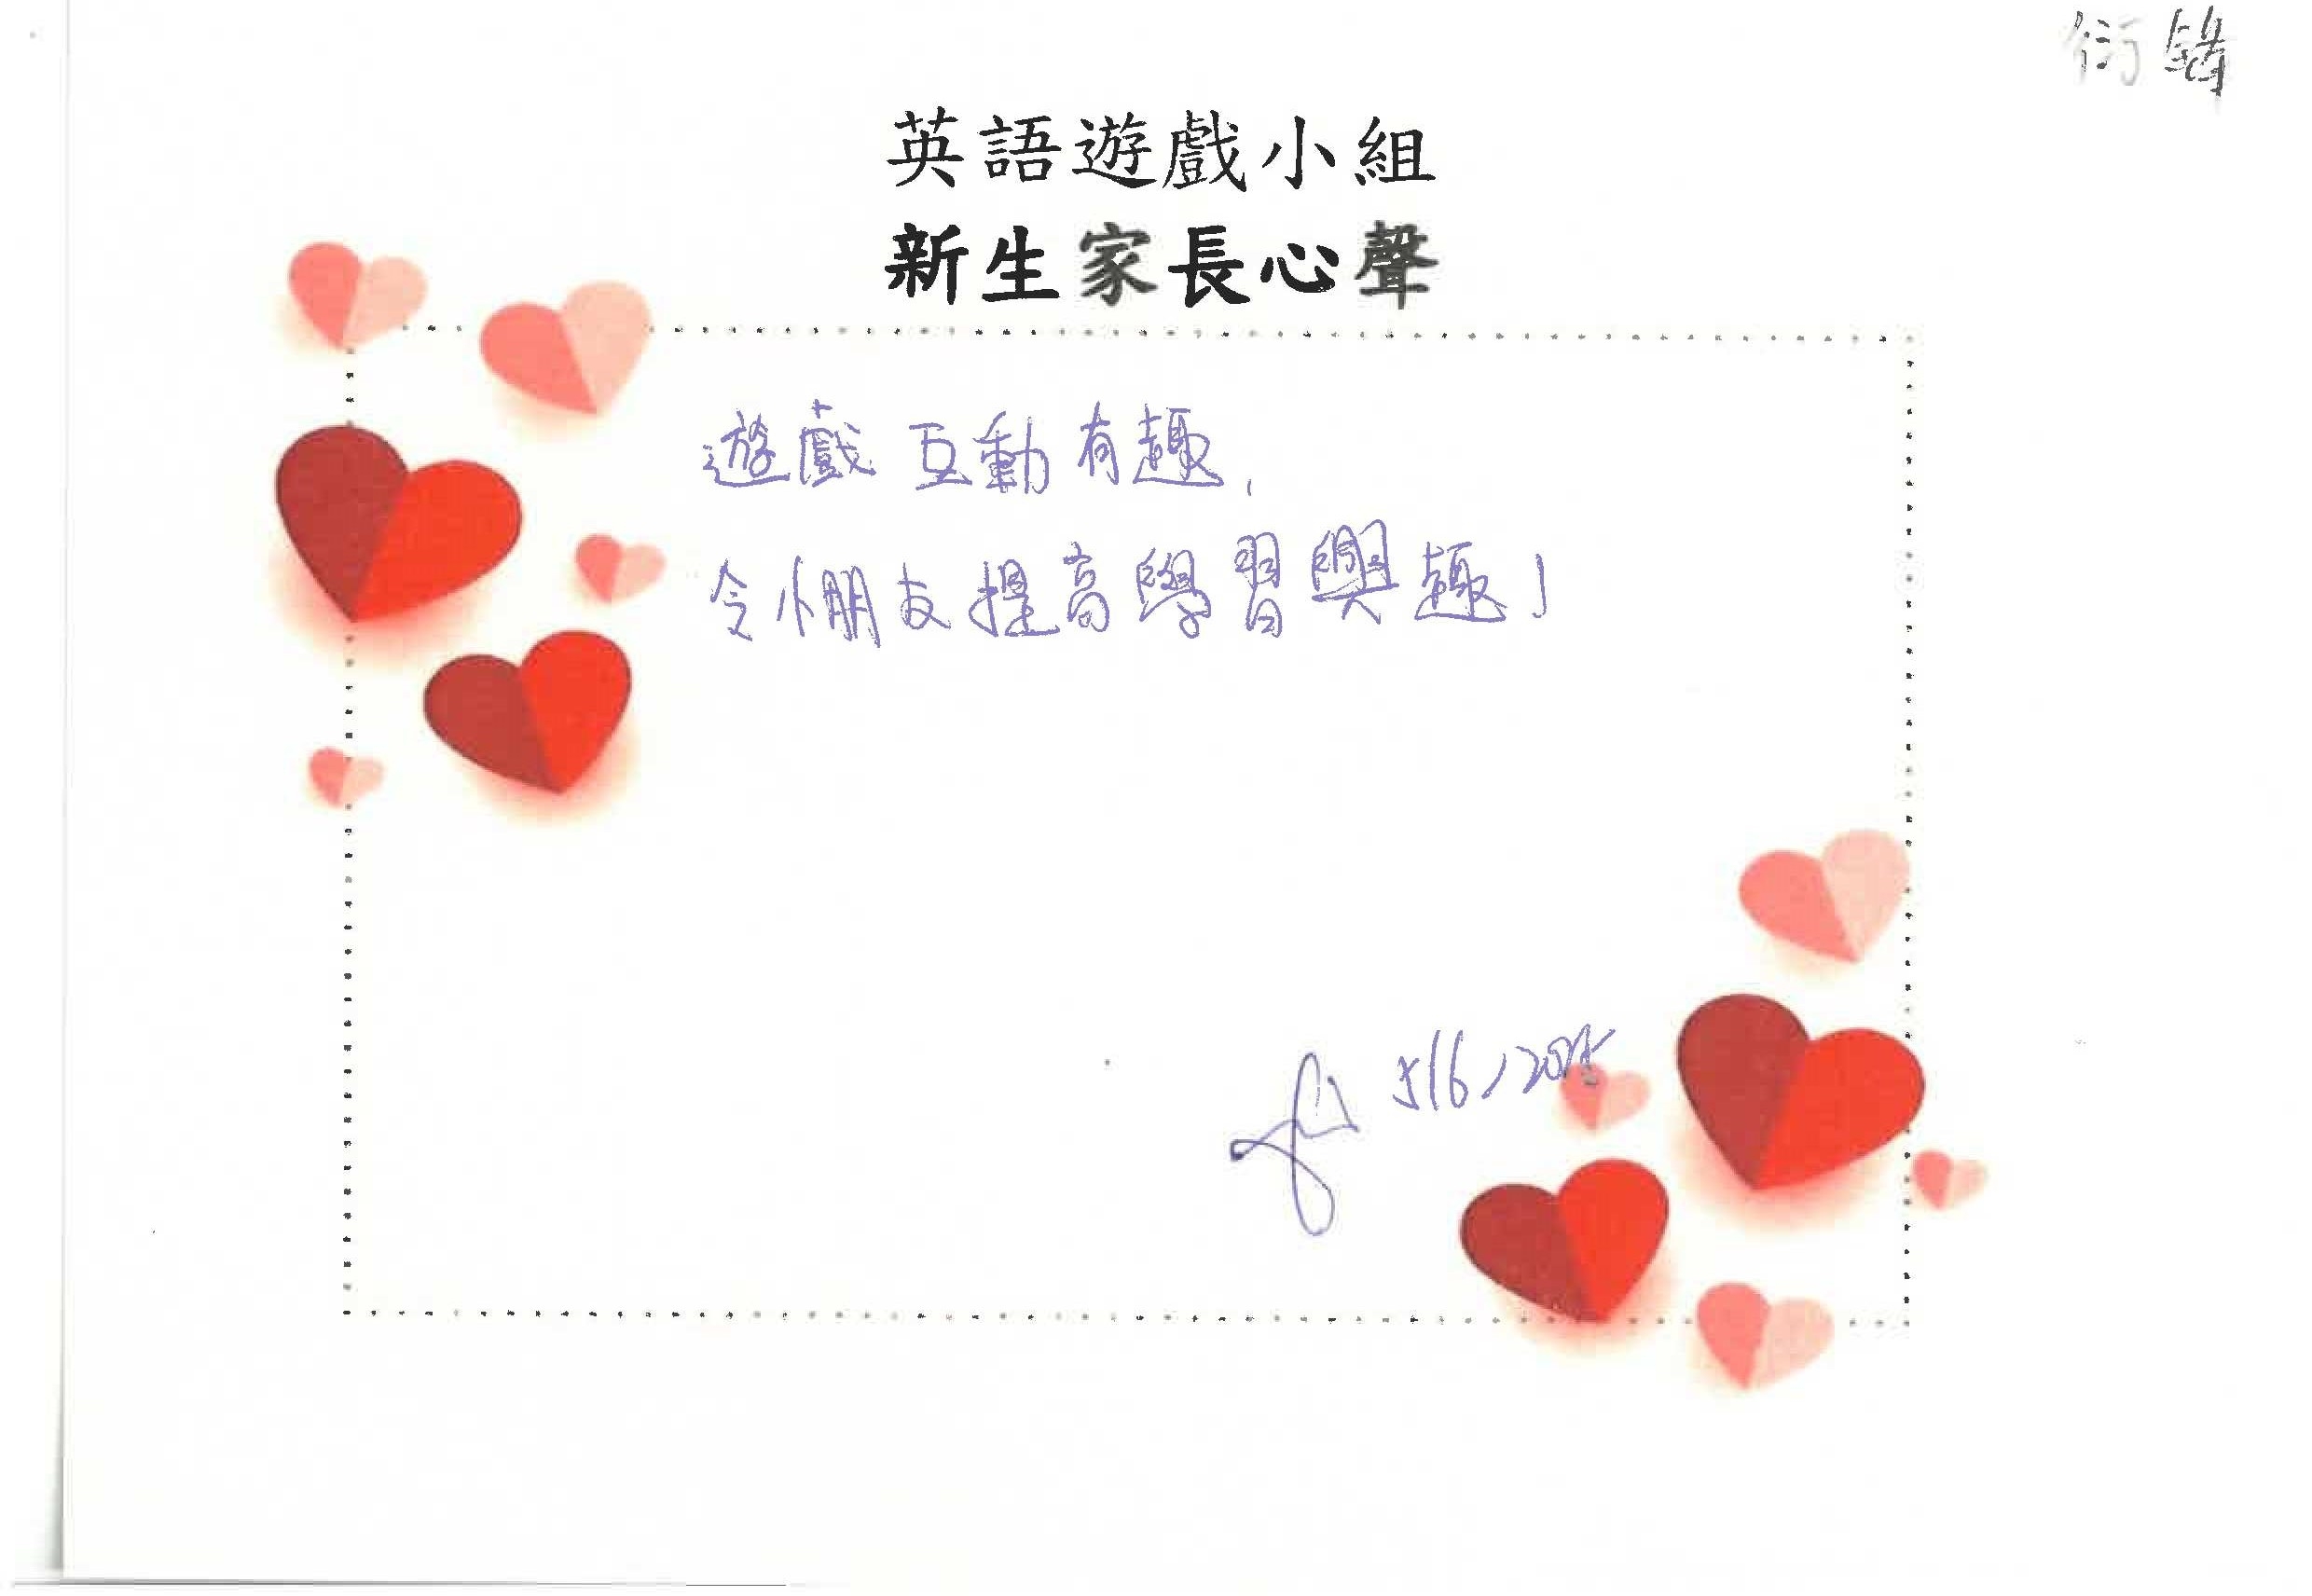 衍鋒
英語遊戲小組
新生家長心聲
遊戲互動有趣,
令小朋友提高學習興趣!
5/6/2025